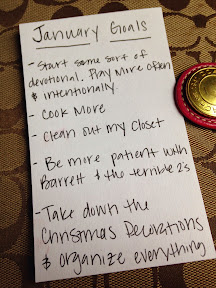 January Goals
- Start some sort of
devotional. Pray More often
& intentionally.
- Cook More
- Clean out my closet
- Be more patient with
Barrett & the terrible 2's
- Take down the
Christmas Decorations
& organize everything